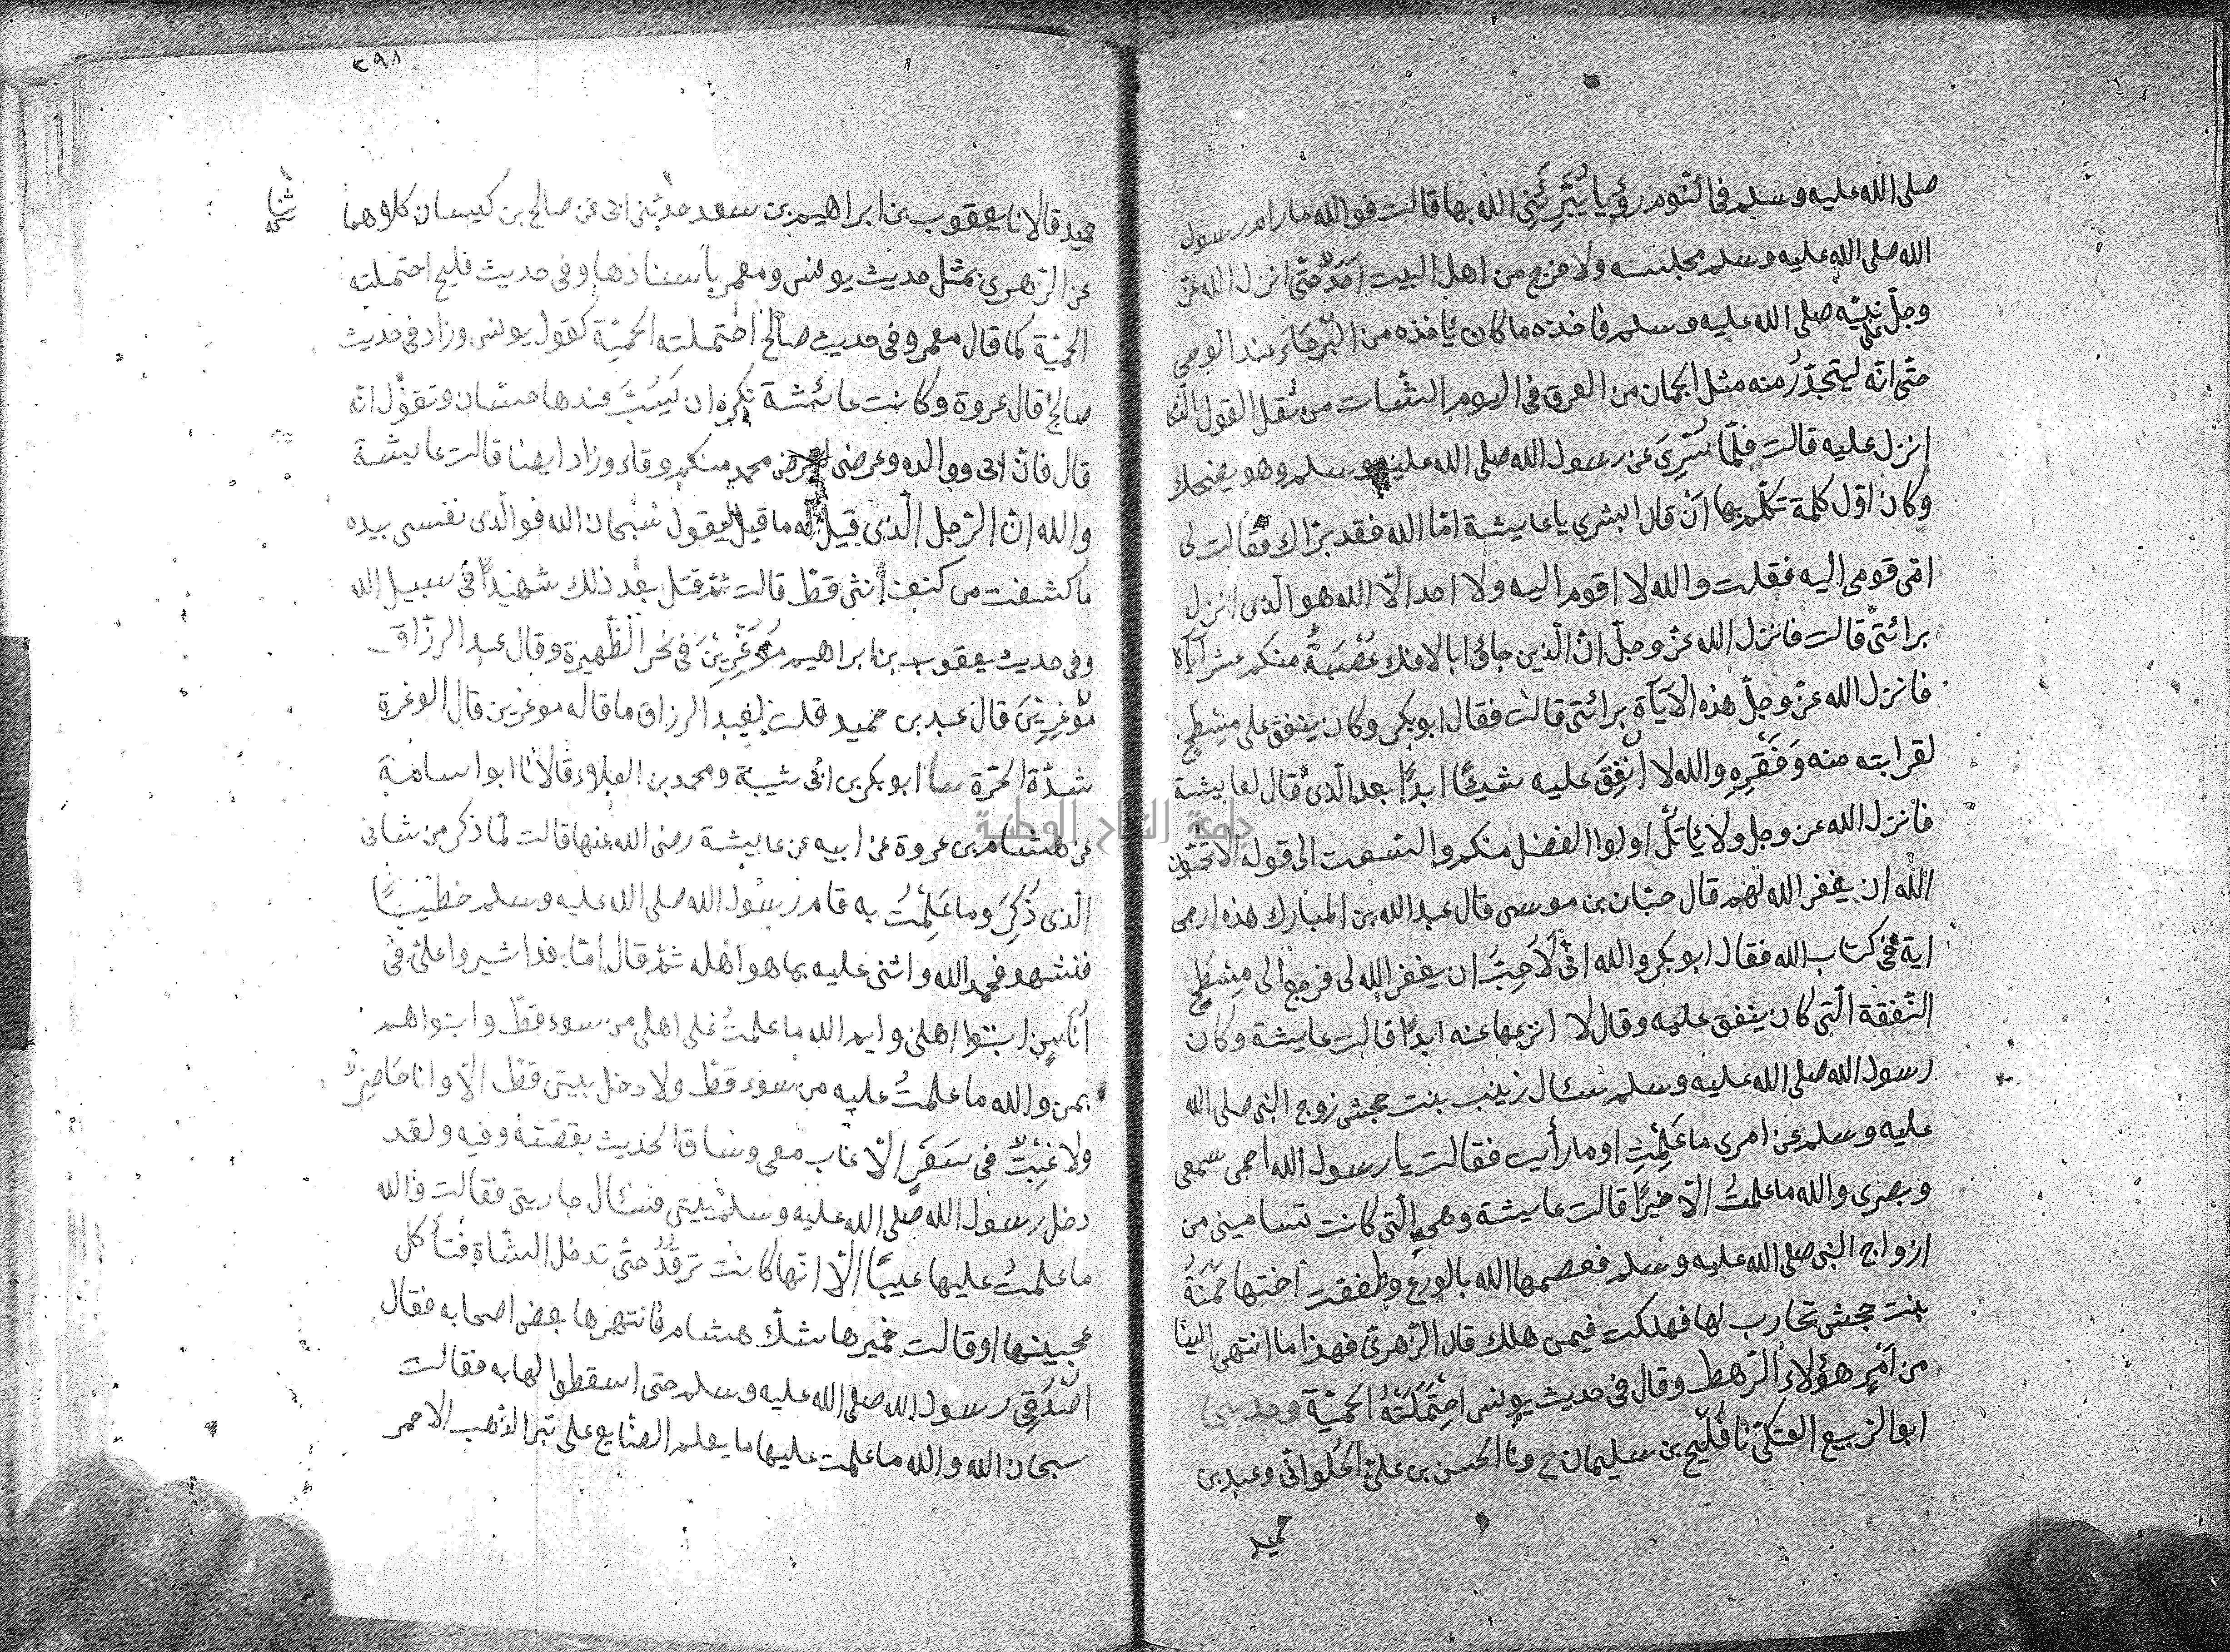 صلى الله عليه وسلم فى النوم رؤيا يُبَرِّئُنِى الله بها قالت فوالله ما رام رسول
الله صلى الله عليه وسلم مجلسه ولا خرج من اهل البيت اَحَدٌ حتى انزل الله عزّ
وجلّ على نبيّه صلى الله عليه وسلم فاخذه ما كان يأخذه من البُرَحَاءِ عند الوحى
حتّى انّه ليتحدّرُ منه مثل الجمان من العرق فى اليوم الشات من ثقل القول الّذى
انزل عليه قالت فلمّا سُرِّىَ عن رسول الله صلى الله عليه وسلم وهو يضحك
وكان اوّل كلمة تكلّم بها اَنْ قال ابشرى يا عايشة امّا الله فقد برّاك فقالت لى
امّى قومى اليه فقلت والله لا اقوم اليه ولا احمد الّا الله هو الّذى انزل
برائتى قالت فانزل الله عزّ وجلّ انّ الّذين جاؤا بالافك عُصْبَةٌ منكم عشر آياة
فانزل الله عزّ وجلّ هذه الآياة برائتى قالت فقال ابو بكر وكان ينفق على مِسْطَحٍ
لقرابته منه وَفَقْرِهِ والله لا اُنْفِقُ عليه شيئًا ابدًا بعد الّذى قال لعايشة
فانزل الله عز وجل ولا يأتل اولوا الفضل منكم والسعت الى قوله الا تحبّون
الله ان يغفر الله لهم قال حبّان بن موسى قال عبد الله بن المبارك هذه ارجى
اية فى كتاب الله فقال ابو بكر والله انّى لَاُحِبُّ ان يغفر الله لى فرجع الى مِسْطَحٍ
النّفقة الّتى كان ينفق عليه وقال لا انزعها عنه ابدًا قالت عايشة وكان
رسول الله صلى الله عليه وسلم سئال زينب بنت جحش زوج النبى صلى الله
عليه وسلم عن امرى ما عَلِمْتِ او ما رأيت فقالت يا رسول الله احمى سمعى
وبصرى والله ما علمتُ الّا خيرًا قالت عايشة وهى الّتى كانت تسامينى من
ازواج النبى صلى الله عليه وسلم فعصمها الله بالورع وطفقت اختها حَمْنَةُ
بنت جحش تحارب لها فهلكت فيمن هلك قال الزّهرىّ فهذا ما انتهى الينا
من اَمْرِ هؤلاء الرّهط وقال فى حديث يونس احْتَمَلَتْهُ الحميّة وحدثنى
ابو الربيع العتكىّ نا فُلَيْح بن سليمان ح ونا الحسن بن علىّ الحُلوانىّ وعبد بن
حميد
٢٩٨
حميد قالا نا يعقوب بن ابراهيم بن سعد حدّثنى ابى عن صالح بن كيسان كلاوهما
عن الزّهرى بمثل حديث يونس ومعمر باسنادها وفى حديث فليح احتملته
الحميّة كما قال معمر وفى حديث صالح احتملته الحميّة كقول يونس وزاد فى حديث
صالح قال عروة وكانت عائشة تكره ان يُسَبَّ عندها حسّان وتقول انّه
قال فانّ ابى ووالده وعرضى لعرض محمد منكم وقاء وزاد ايضا قالت عايشة
والله انّ الرّجل الّذى قيل له ما قيل ليقول سبحان الله فوالّذى نفسى بيده
ما كشفت من كنف انثى قطّ قالت ثمّ قتل بعد ذلك شهيدًا فى سبيل الله
وفى حديث يعقوب بن ابراهيم مُوَغِّرِيْنَ فى نحر الظّهيرة وقال عبد الرزّاق
مُوغِرِيْنَ قال عبد بن حميد قلت لعبد الرزاق ما قاله موغرين قال الوغرة
شدّة الحرّة نا ابو بكر بن ابى شيبة ومحمد بن العلاء قالا نا ابو اسامة
عن هشام بن عروة عن ابيه عن عايشة رضى الله عنها قالت لمّا ذكر من شانى
الّذى ذُكِرَ وما عَلِمْتُ به قام رسول الله صلى الله عليه وسلم خطيبًا
فتشهد فحمد الله واثنى عليه بما هو اهله ثمّ قال امّا بعد اشيروا علىّ فى
اُنَاسٍ ابنوا اهلى وايم الله ما علمتُ على اهلى من سوء قطّ وابنواهم
بمن والله ما علمتُ عليه من سوء قطّ ولا دخل بيتى قطّ الّا وانا حَاضِرٌ
ولا غِبْتُ فى سَفَرٍ الّا غاب معى وساق الحديث بقصّته وفيه ولقد
دخل رسول الله صلى الله عليه وسلم بيتى فسئال جاريتى فقالت والله
ما علمتُ عليها عيبًا الّا انّها كانت ترقُدُ حتّى تدخل الشّاة فتأكل
عجينها او قالت خميرها شكّ هشام فانتهرها بعض اصحابه فقال
اصْدُقِى رسول الله صلى الله عليه وسلم حتى اسقطوا لها به فقالت
سبحان الله والله ما علمت عليها ما يعلم الصّايغ على تبر الذّهب الاحمر
جامعة النجاح الوطنية